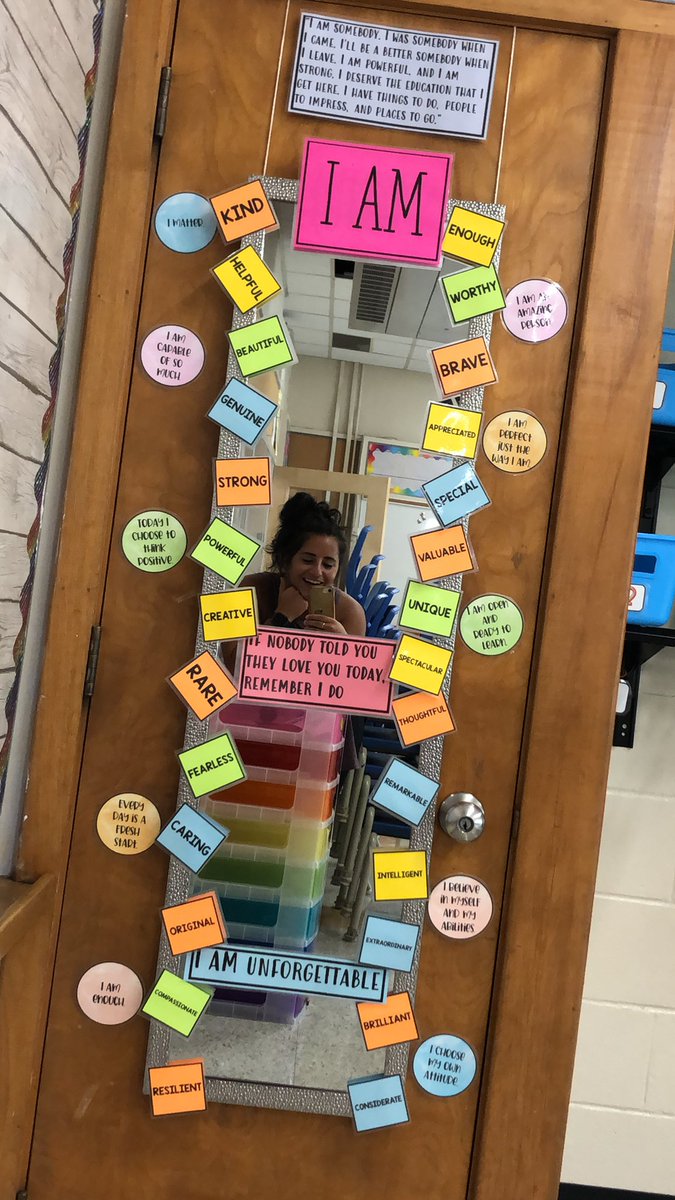 "I AM SOMEBODY. I WAS SOMEBODY WHEN
I CAME. I'LL BE A BETTER SOMEBODY WHEN
I LEAVE. I AM POWERFUL, AND I AM
STRONG. I DESERVE THE EDUCATION THAT I
GET HERE. I HAVE THINGS TO DO, PEOPLE
TO IMPRESS, AND PLACES TO GO."
I AM
I MATTER
KIND
ENOUGH
HELPFUL
WORTHY
I AM AN
AMAZING
PERSON
I AM
CAPABLE
OF SO
MUCH
BEAUTIFUL
BRAVE
GENUINE
APPRECIATED
I AM
PERFECT
JUST THE
WAY I AM
STRONG
SPECIAL
TODAY I
CHOOSE TO
THINK
POSITIVE
POWERFUL
VALUABLE
CREATIVE
UNIQUE
I AM OPEN
AND
READY TO
LEARN
IF NOBODY TOLD YOU
THEY LOVE YOU TODAY,
REMEMBER I DO
SPECTACULAR
RARE
THOUGHTFUL
FEARLESS
REMARKABLE
EVERY
DAY IS A
FRESH
START
CARING
INTELLIGENT
I BELIEVE
IN MYSELF
AND MY
ABILITIES
ORIGINAL
EXTRAORDINARY
I AM UNFORGETTABLE
I AM
ENOUGH
COMPASSIONATE
BRILLIANT
I CHOOSE
MY OWN
ATTITUDE
RESILIENT
CONSIDERATE